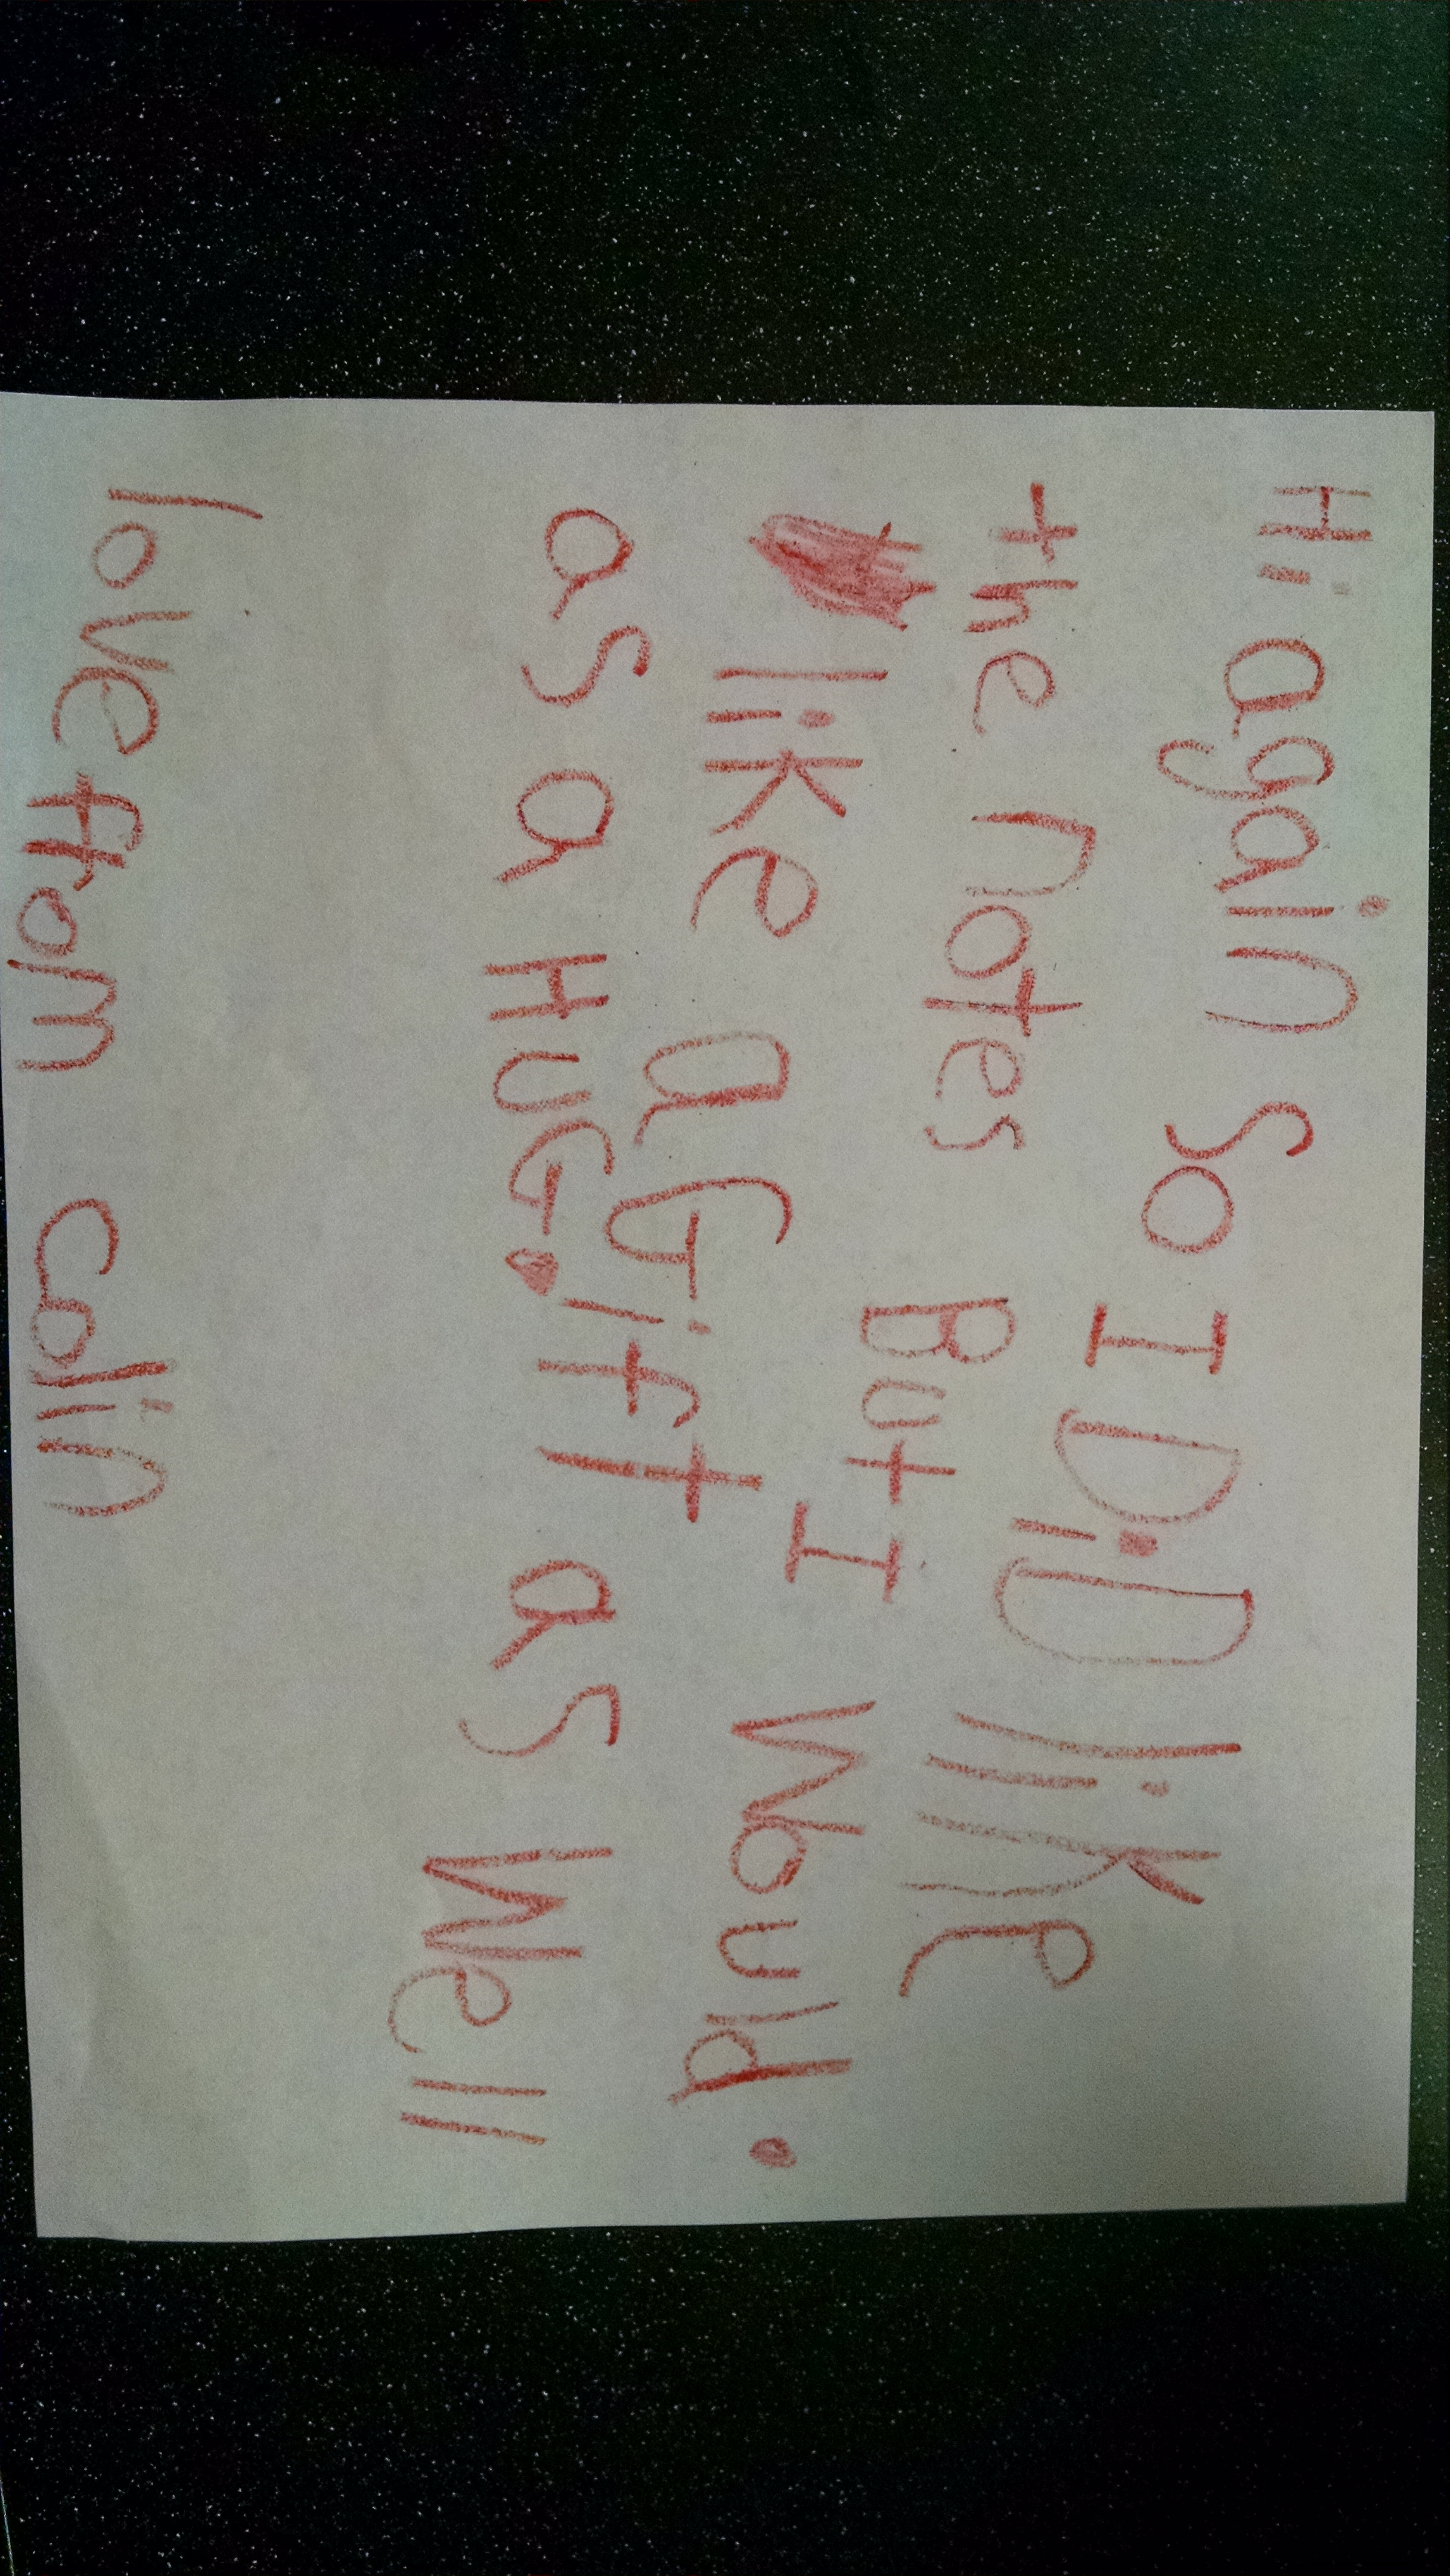 Hi again so I DiD like
the notes But I would.
like a Gift as well
as a HUG.
love from colin